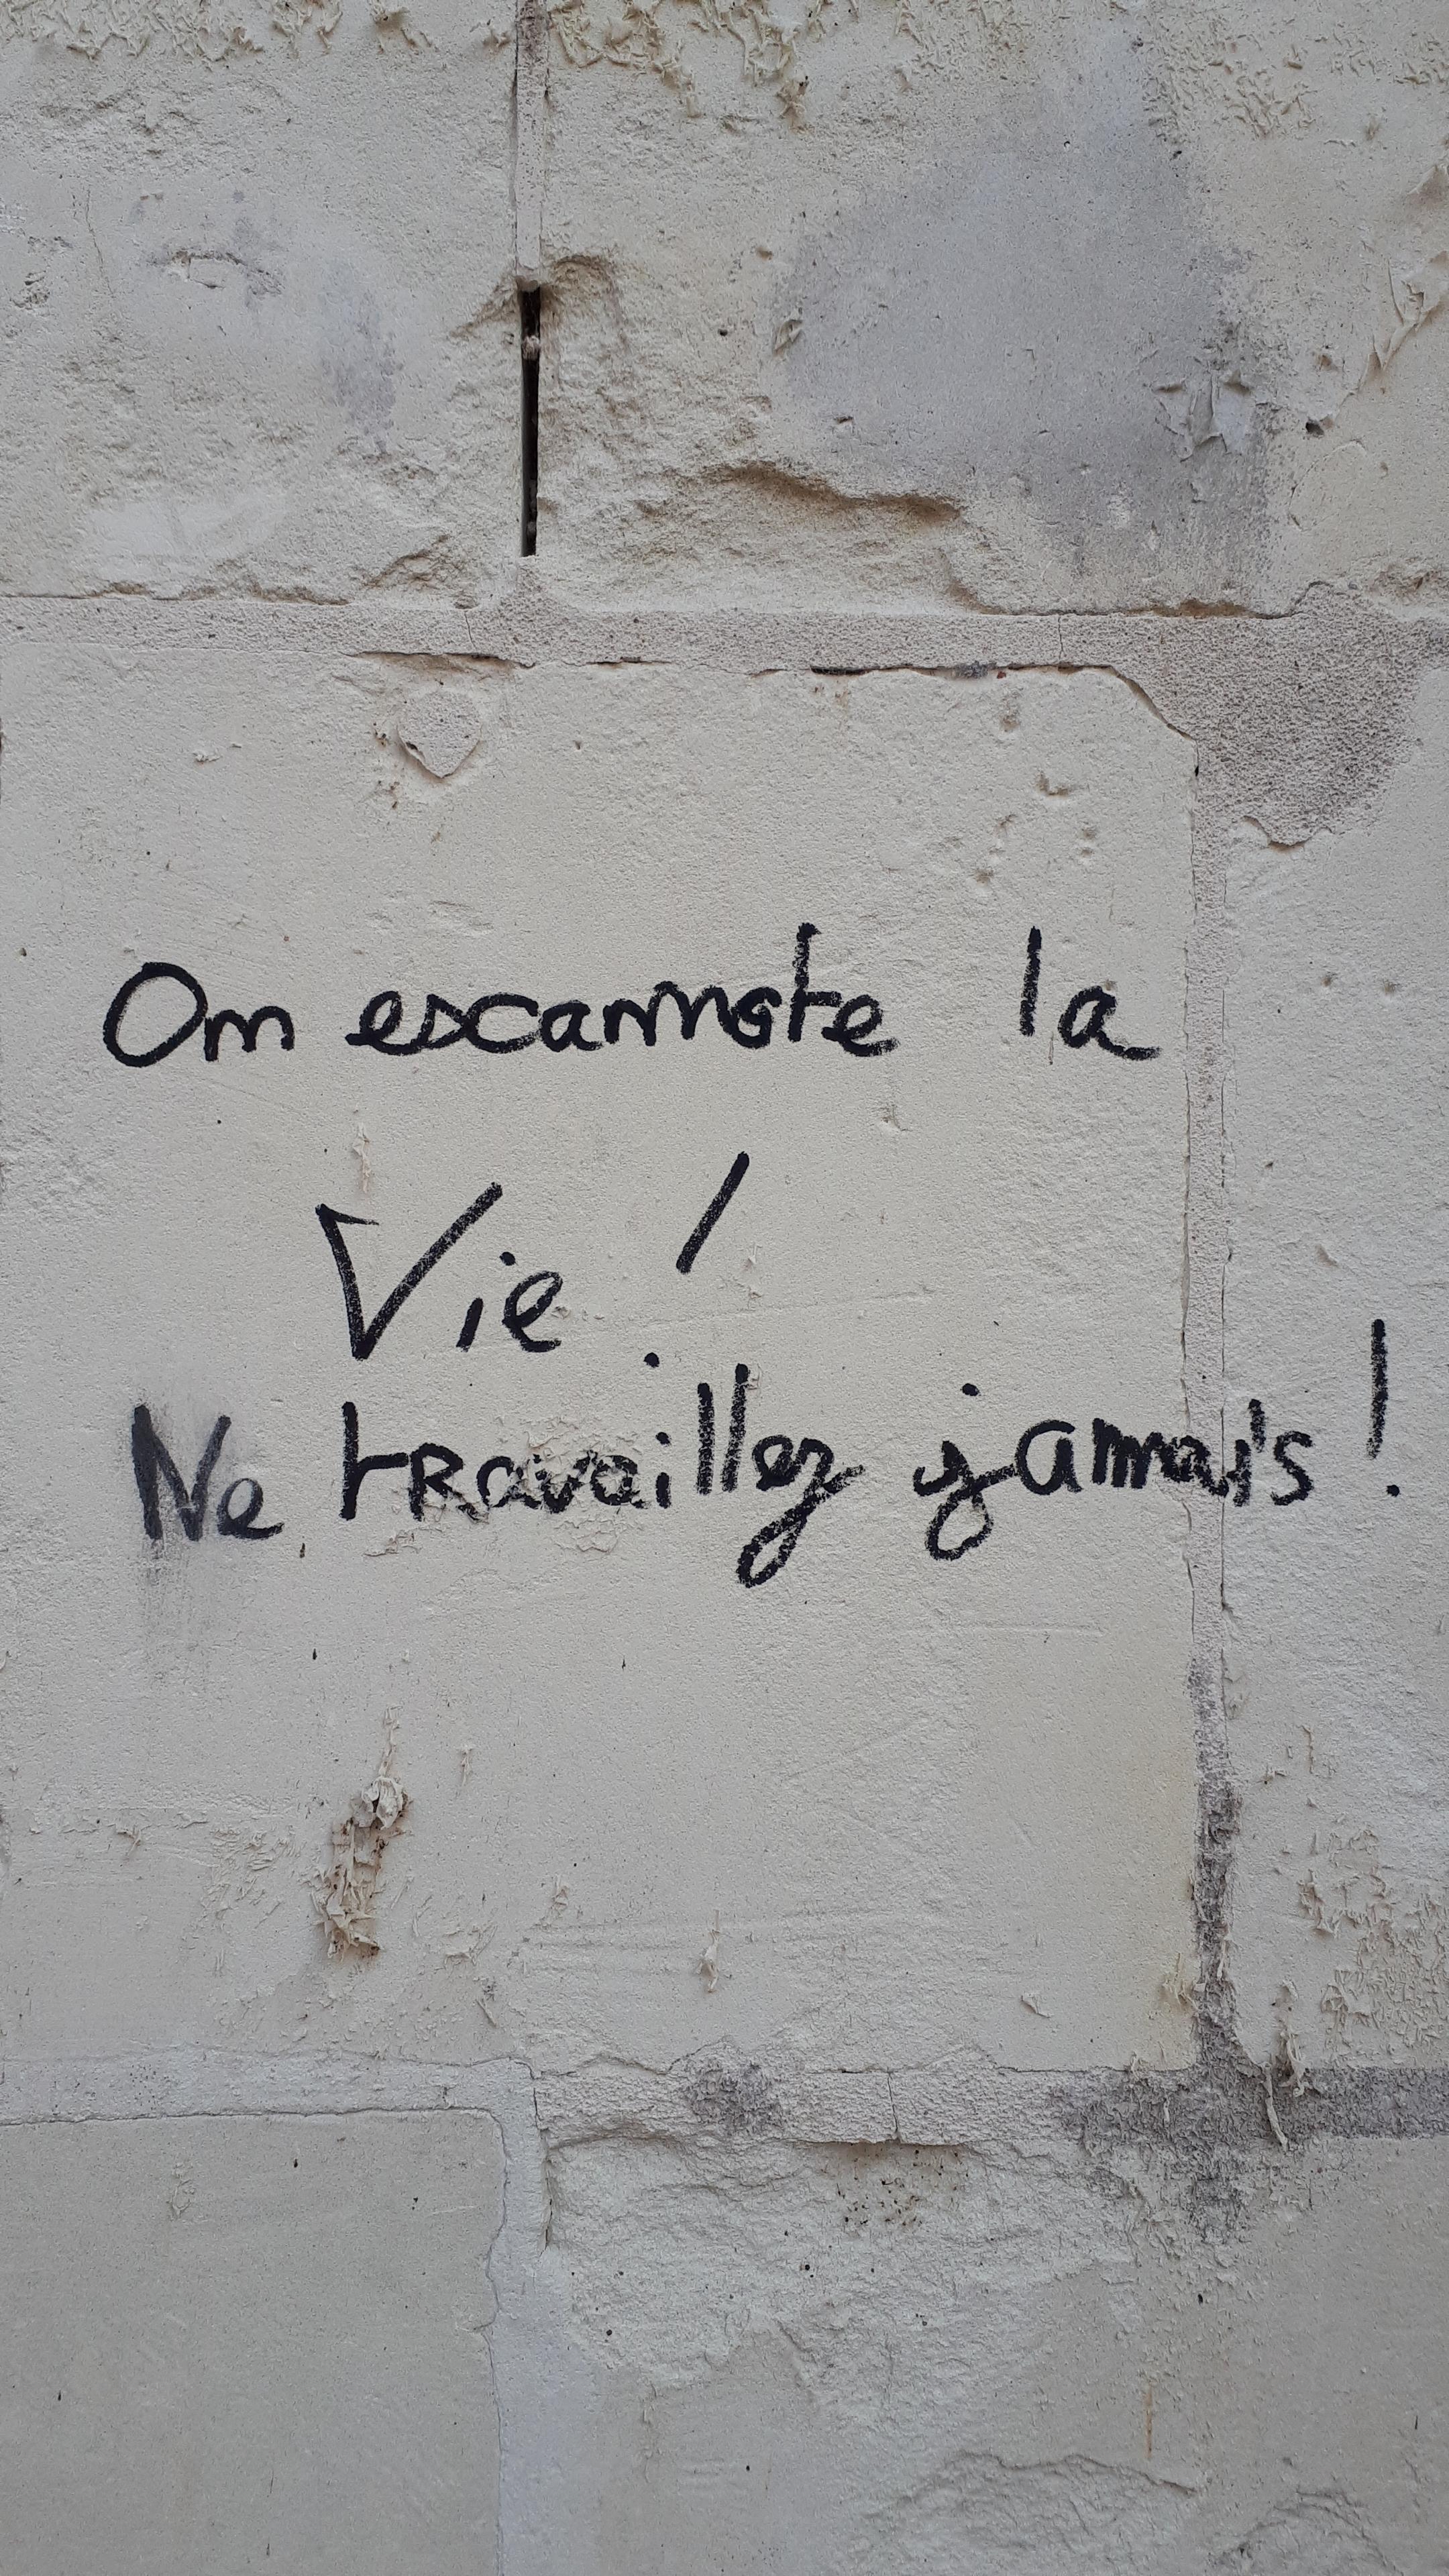 On escamote la
Vie !
Ne travaillez jamais !